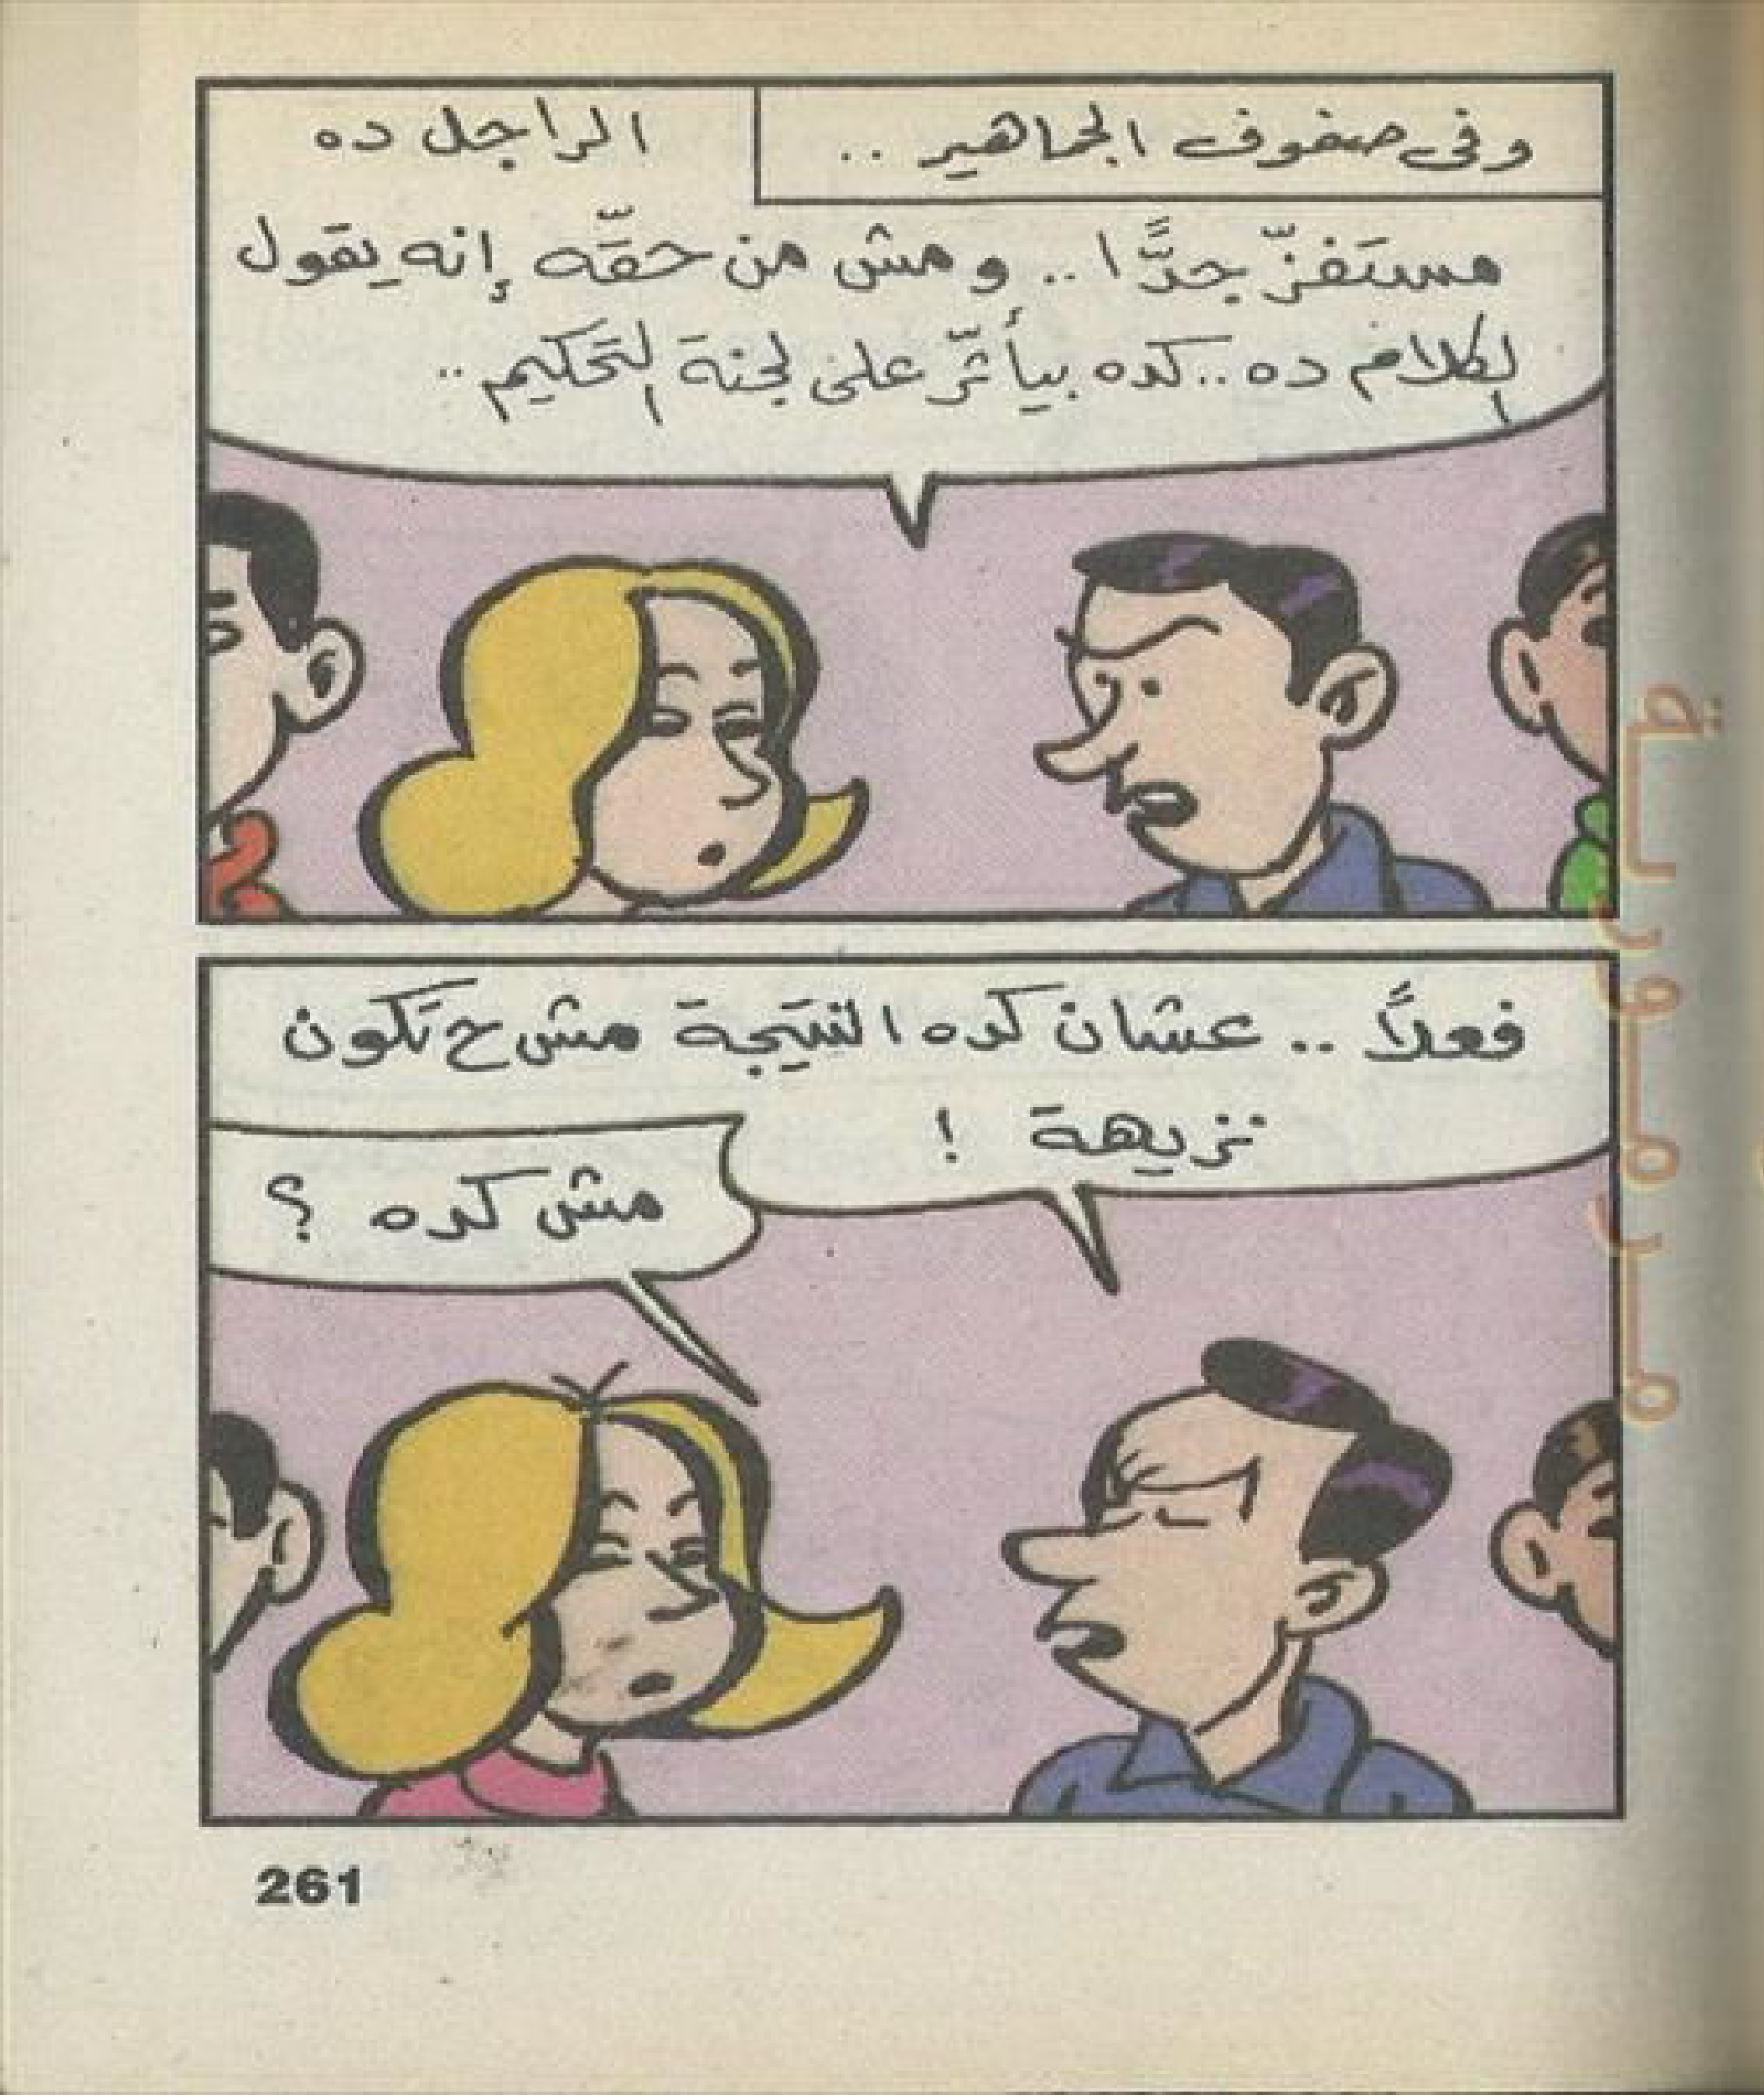 وفى صفوف الجماهير ..
الراجل ده
مستفزّ جدًّا .. ومش من حقّه إنه يقول
الكلام ده .. كده بيأثّر على لجنة التحكيم ..
فعلاً .. عشان كده النتيجة مش ح تكون
نزيهة !
مش كده ؟
261
مرمورية